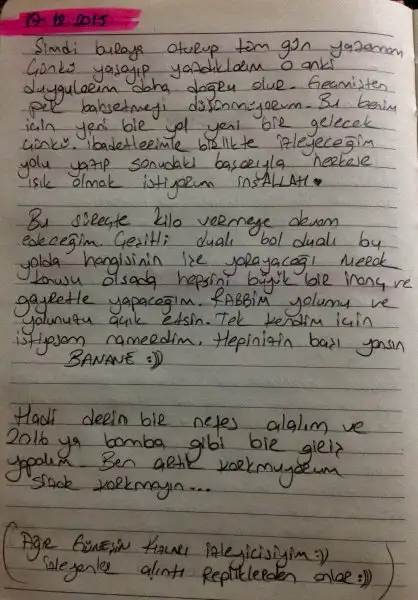 17.12.2015
Şimdi buraya oturup tüm gün yazamam
Çünkü yaşayıp yazdıklarım o anki
duygularım daha doğru olur. Geçmişten
pek bahsetmeyi düşünmüyorum. Bu benim
için yeni bir yol yeni bir gelecek
çünkü. ibadetlerimle birlikte izleyeceğim
yolu yazıp sonundaki başarıyla herkese
ışık olmak istiyorum inşALLAH
Bu süreçte kilo vermeye devam
edeceğim. Çeşitli dualı bol dualı bu
yolda hangisinin işe yarayacağı merak
konusu olsada hepsini büyük bir inanç ve
gayretle yapacağım. RABBİM yolumu ve
yolunuzu açık etsin. Tek kendim için
istiyosam namerdim. Hepinizin başı yansın
BANANE :))
Hadi derin bir nefes alalım ve
2016 ya bomba gibi bir giriş
yapalım. Ben artık korkmuyorum
sizde korkmayın...
(Ağır GÜNEŞİN KIZLARI izleyicisiyim :))
izleyenler alıntı Repliklerden anlar :)))